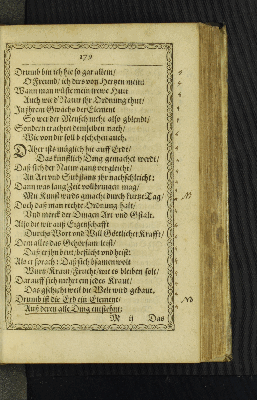 179
Drumb bin ich hie so gar allein/
O Freund/ ich dirs von Hertzen mein:
Wann man müste mein trewe Hut
Auch wie d' Natur ihr Ordnung thut/
In ihrem Gewächs der Element
So wer der Mensch nicht also gblendt/
Sondern trachtet denselben nach/
Wie von dir soll beschehen auch.
Daher ists müglich hie auff Erdt/
Das künstlich Ding gemachet werdt/
Daß sich der Natur gantz vergleicht/
An Art und Substantz ihr nachschleicht:
Dann was lang Zeit vollbringen mag/
Mit Kunst wirds gmacht durch kurtze Tag/
Doch daß man rechte Ordnung halt/
Und merck der Dingen Art und Gstalt.
Also die wir auß Eigenschafft
Durchs Wort und Will Göttlicher Krafft/
Dem alles das Gehorsam leist/
Daß er ihn bent/
Als er sprach: Daß sich bsamen wolt
Wurtz/Kraut/Frücht/wie es bleiben solt/
Darauff sich mehrt ein jedes Kraut/
Das gschicht weil die Welt wird gebaut.
Drumb ist die Erd ein Element/
Auß deren alle Ding entstehnt:
M ij Das